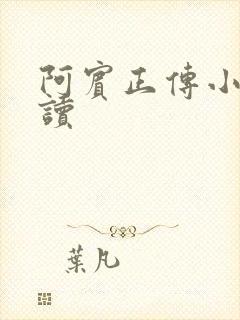 阿賓正傳小
讀
葉凡